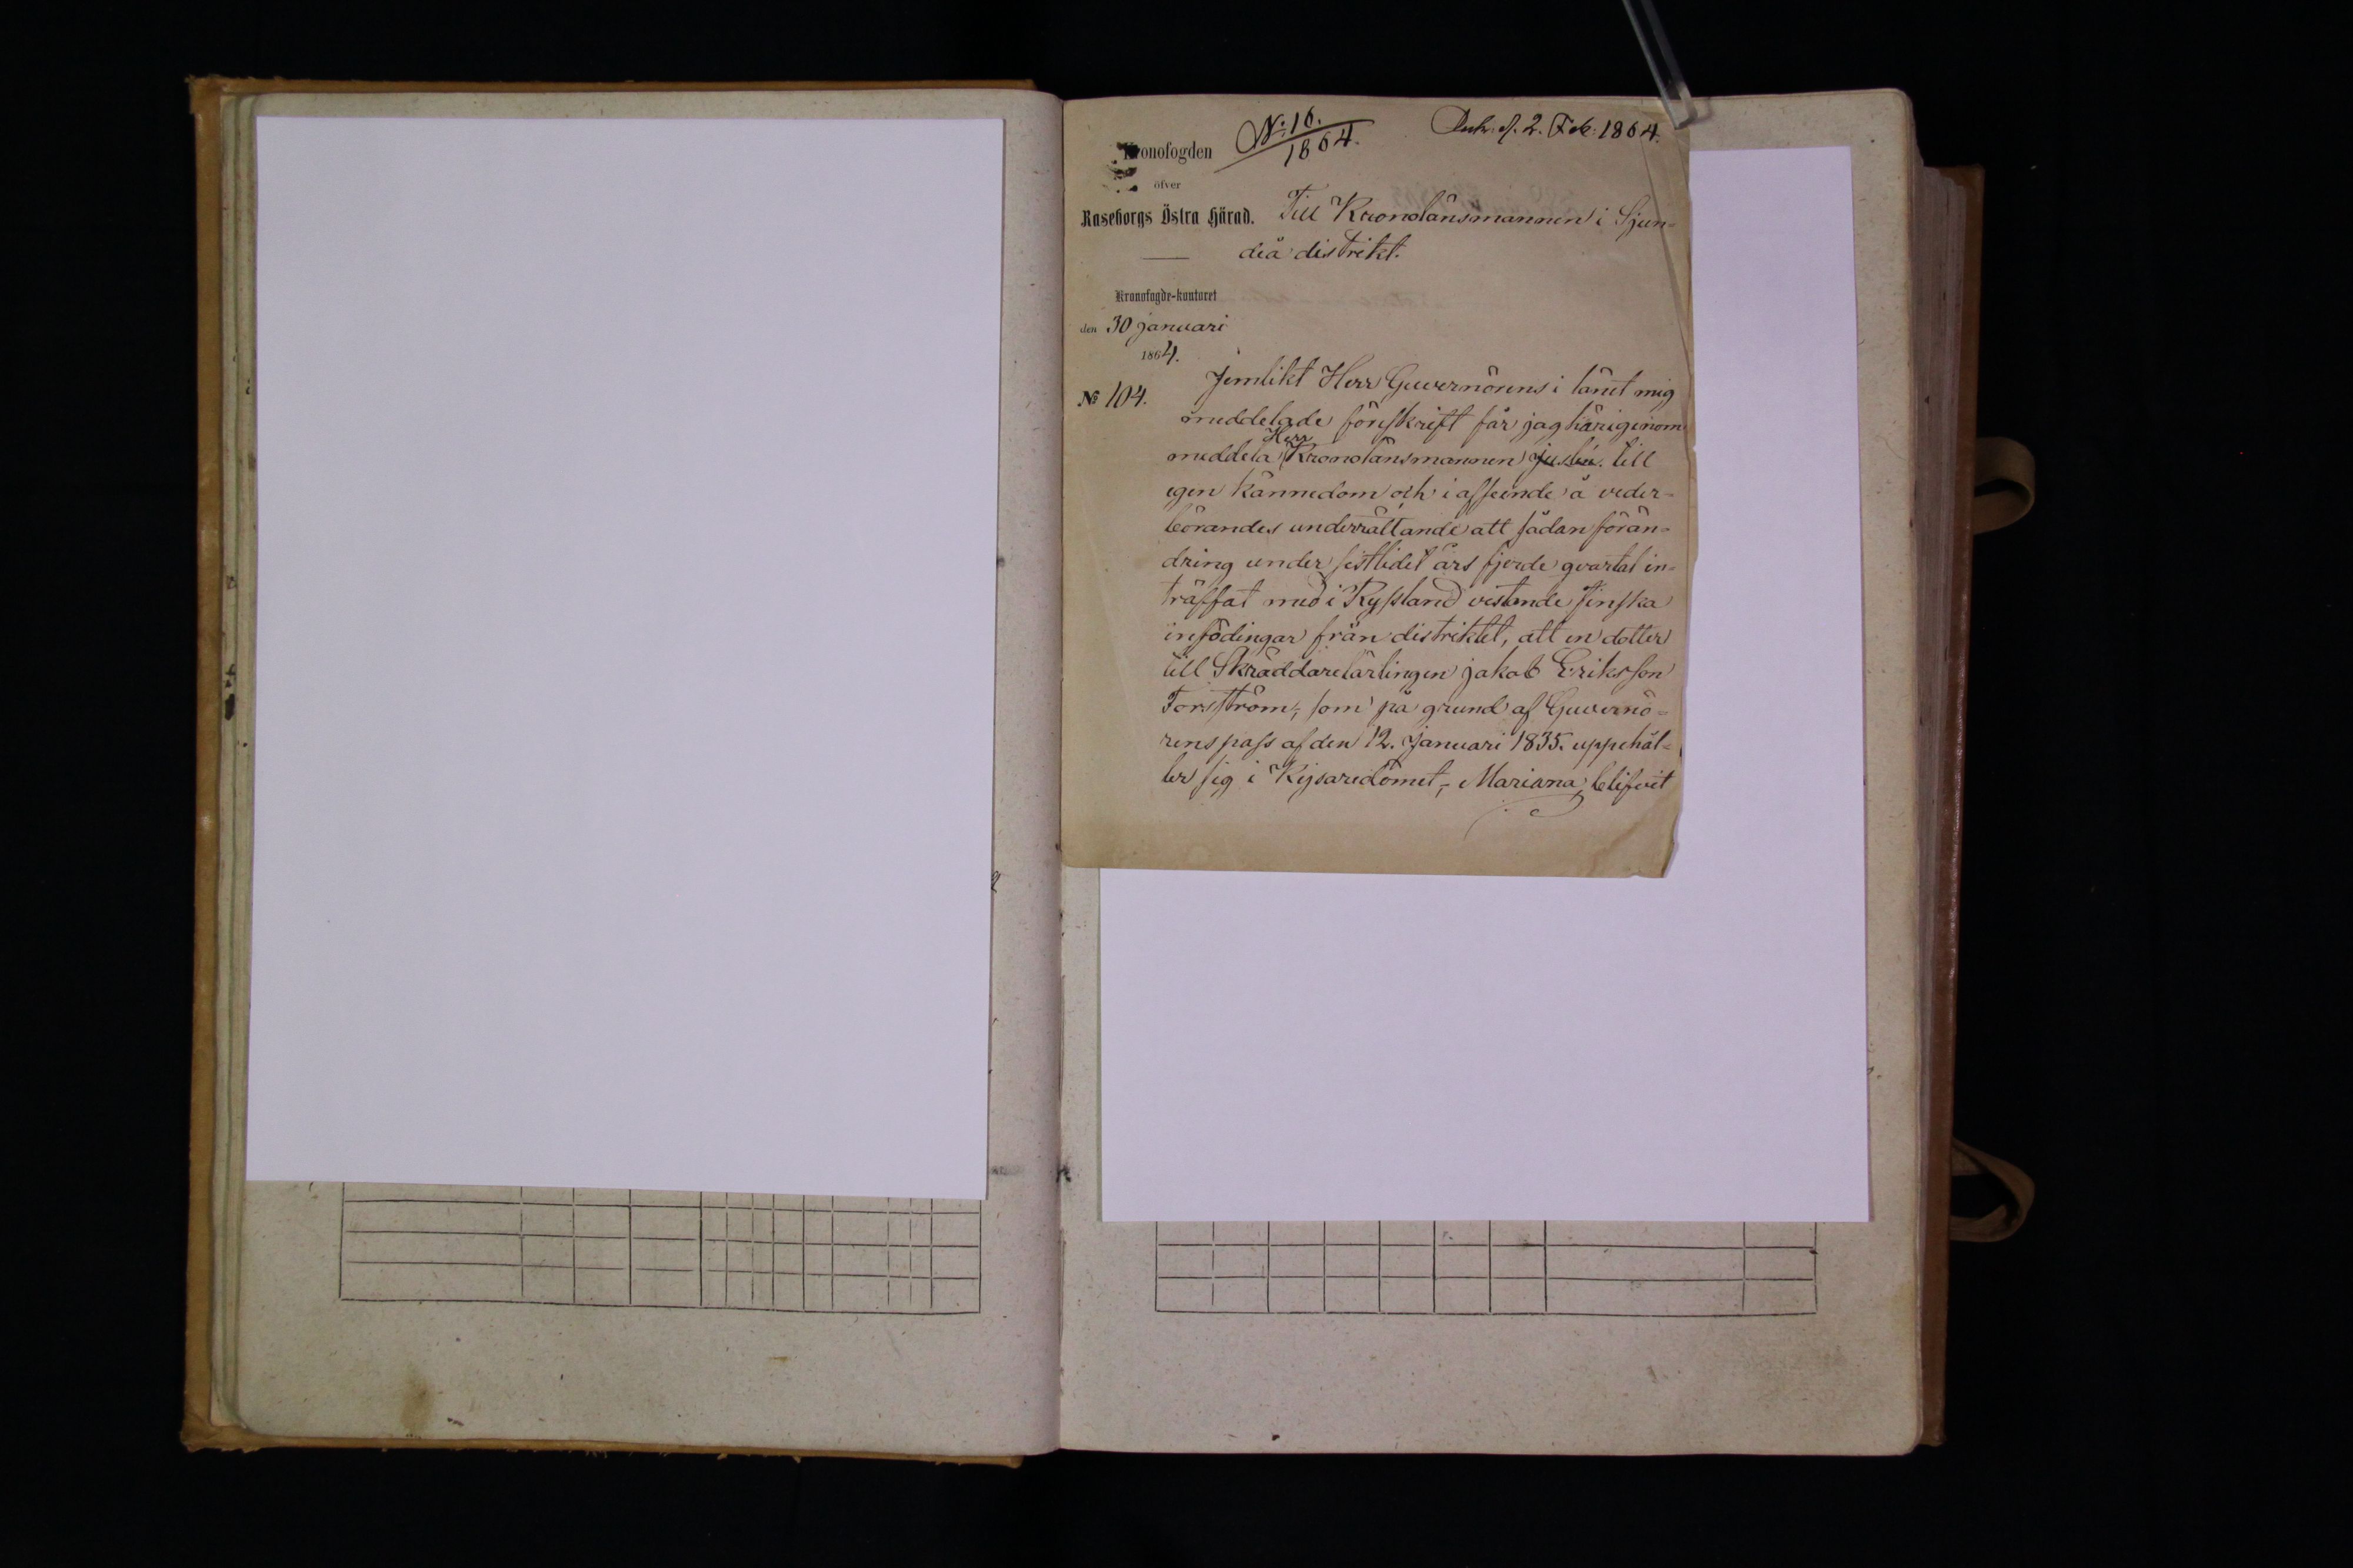 N: 16.
1864.
d. 2. Feb: 1864.
Kronofogden
öfver
Raseborgs Östra Härad.
Till Kronolänsmannen i Sjun-
deå distrikt.
Kronofogde-kontoret
den 30 januari
1864.
No 104.
Jemlikt Herr Guvernörens i länet mig
meddelade föreskrift får jag härigenom
Herr
meddela Kronolänsmannen till
egen kännedom och i afseende å veder-
börandes underrättande att sådan förän-
dring under sistlidet års fjerde qvartal in-
träffat med i Ryssland vistande finska
infödingar från distriktet, att en dotter
till Skräddarelärlingen jakob Eriksson
Forsström, som på grund af Guvernö-
rens pass af den 12. Januari 1835. uppehål-
ler sig i Kejsaredömet, Mariana, blifvit